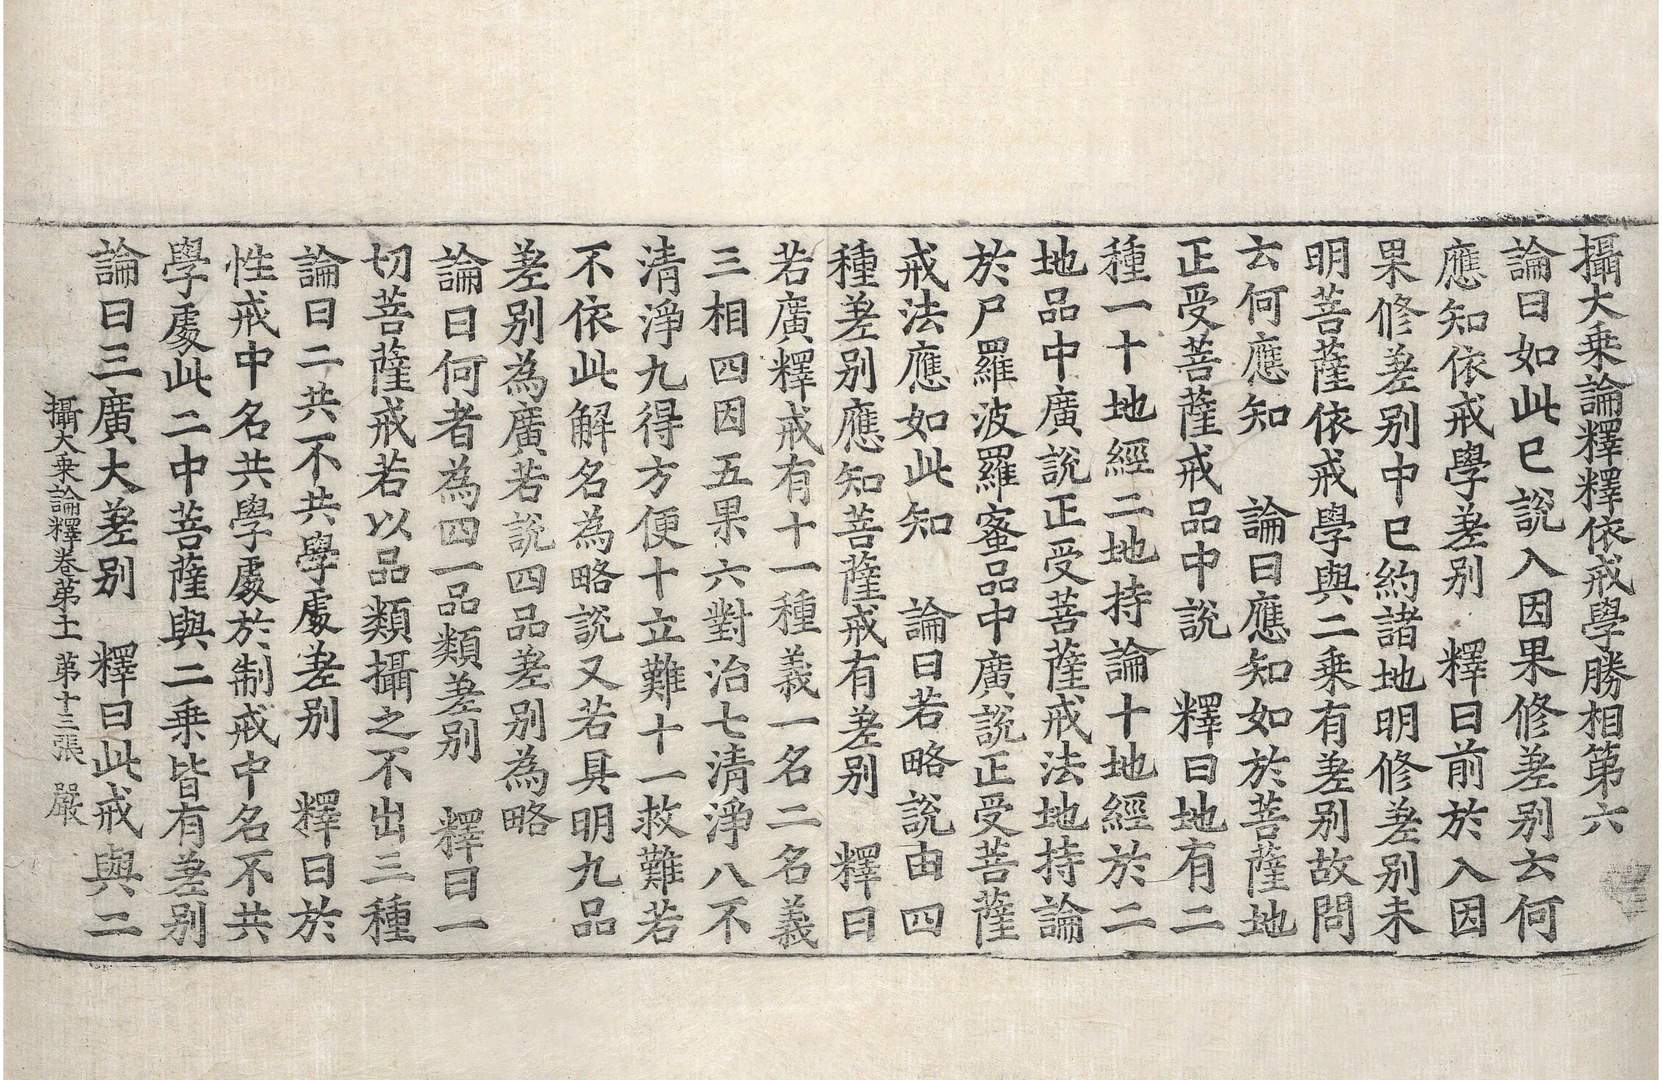 攝大乗論釋釋依戒學勝相第六
論曰如此已說入因果修差别云何
應知依戒學差别　釋曰前於入因
果修差别中已約諸地明修差别未
明菩薩依戒學與二乗有差别故問
云何應知　論曰應知如於菩薩地
正受菩薩戒品中說　釋曰地有二
種一十地經二地持論十地經於二
地品中廣說正受菩薩戒法地持論
於尸羅波羅蜜品中廣說正受菩薩
戒法應如此知　論曰若略說由四
種差别應知菩薩戒有差别　釋曰
若廣釋戒有十一種義一名二名義
三相四因五果六對治七清淨八不
清淨九得方便十立難十一救難若
不依此解名為略說又若具明九品
差别為廣若說四品差别為略
論曰何者為四一品類差别　釋曰一
切菩薩戒若以品類攝之不出三種
論曰二共不共學處差别　釋曰於
性戒中名共學處於制戒中名不共
學處此二中菩薩與二乗皆有差别
論曰三廣大差别　釋曰此戒與二
攝大乗論釋卷第十一　第十三張　嚴